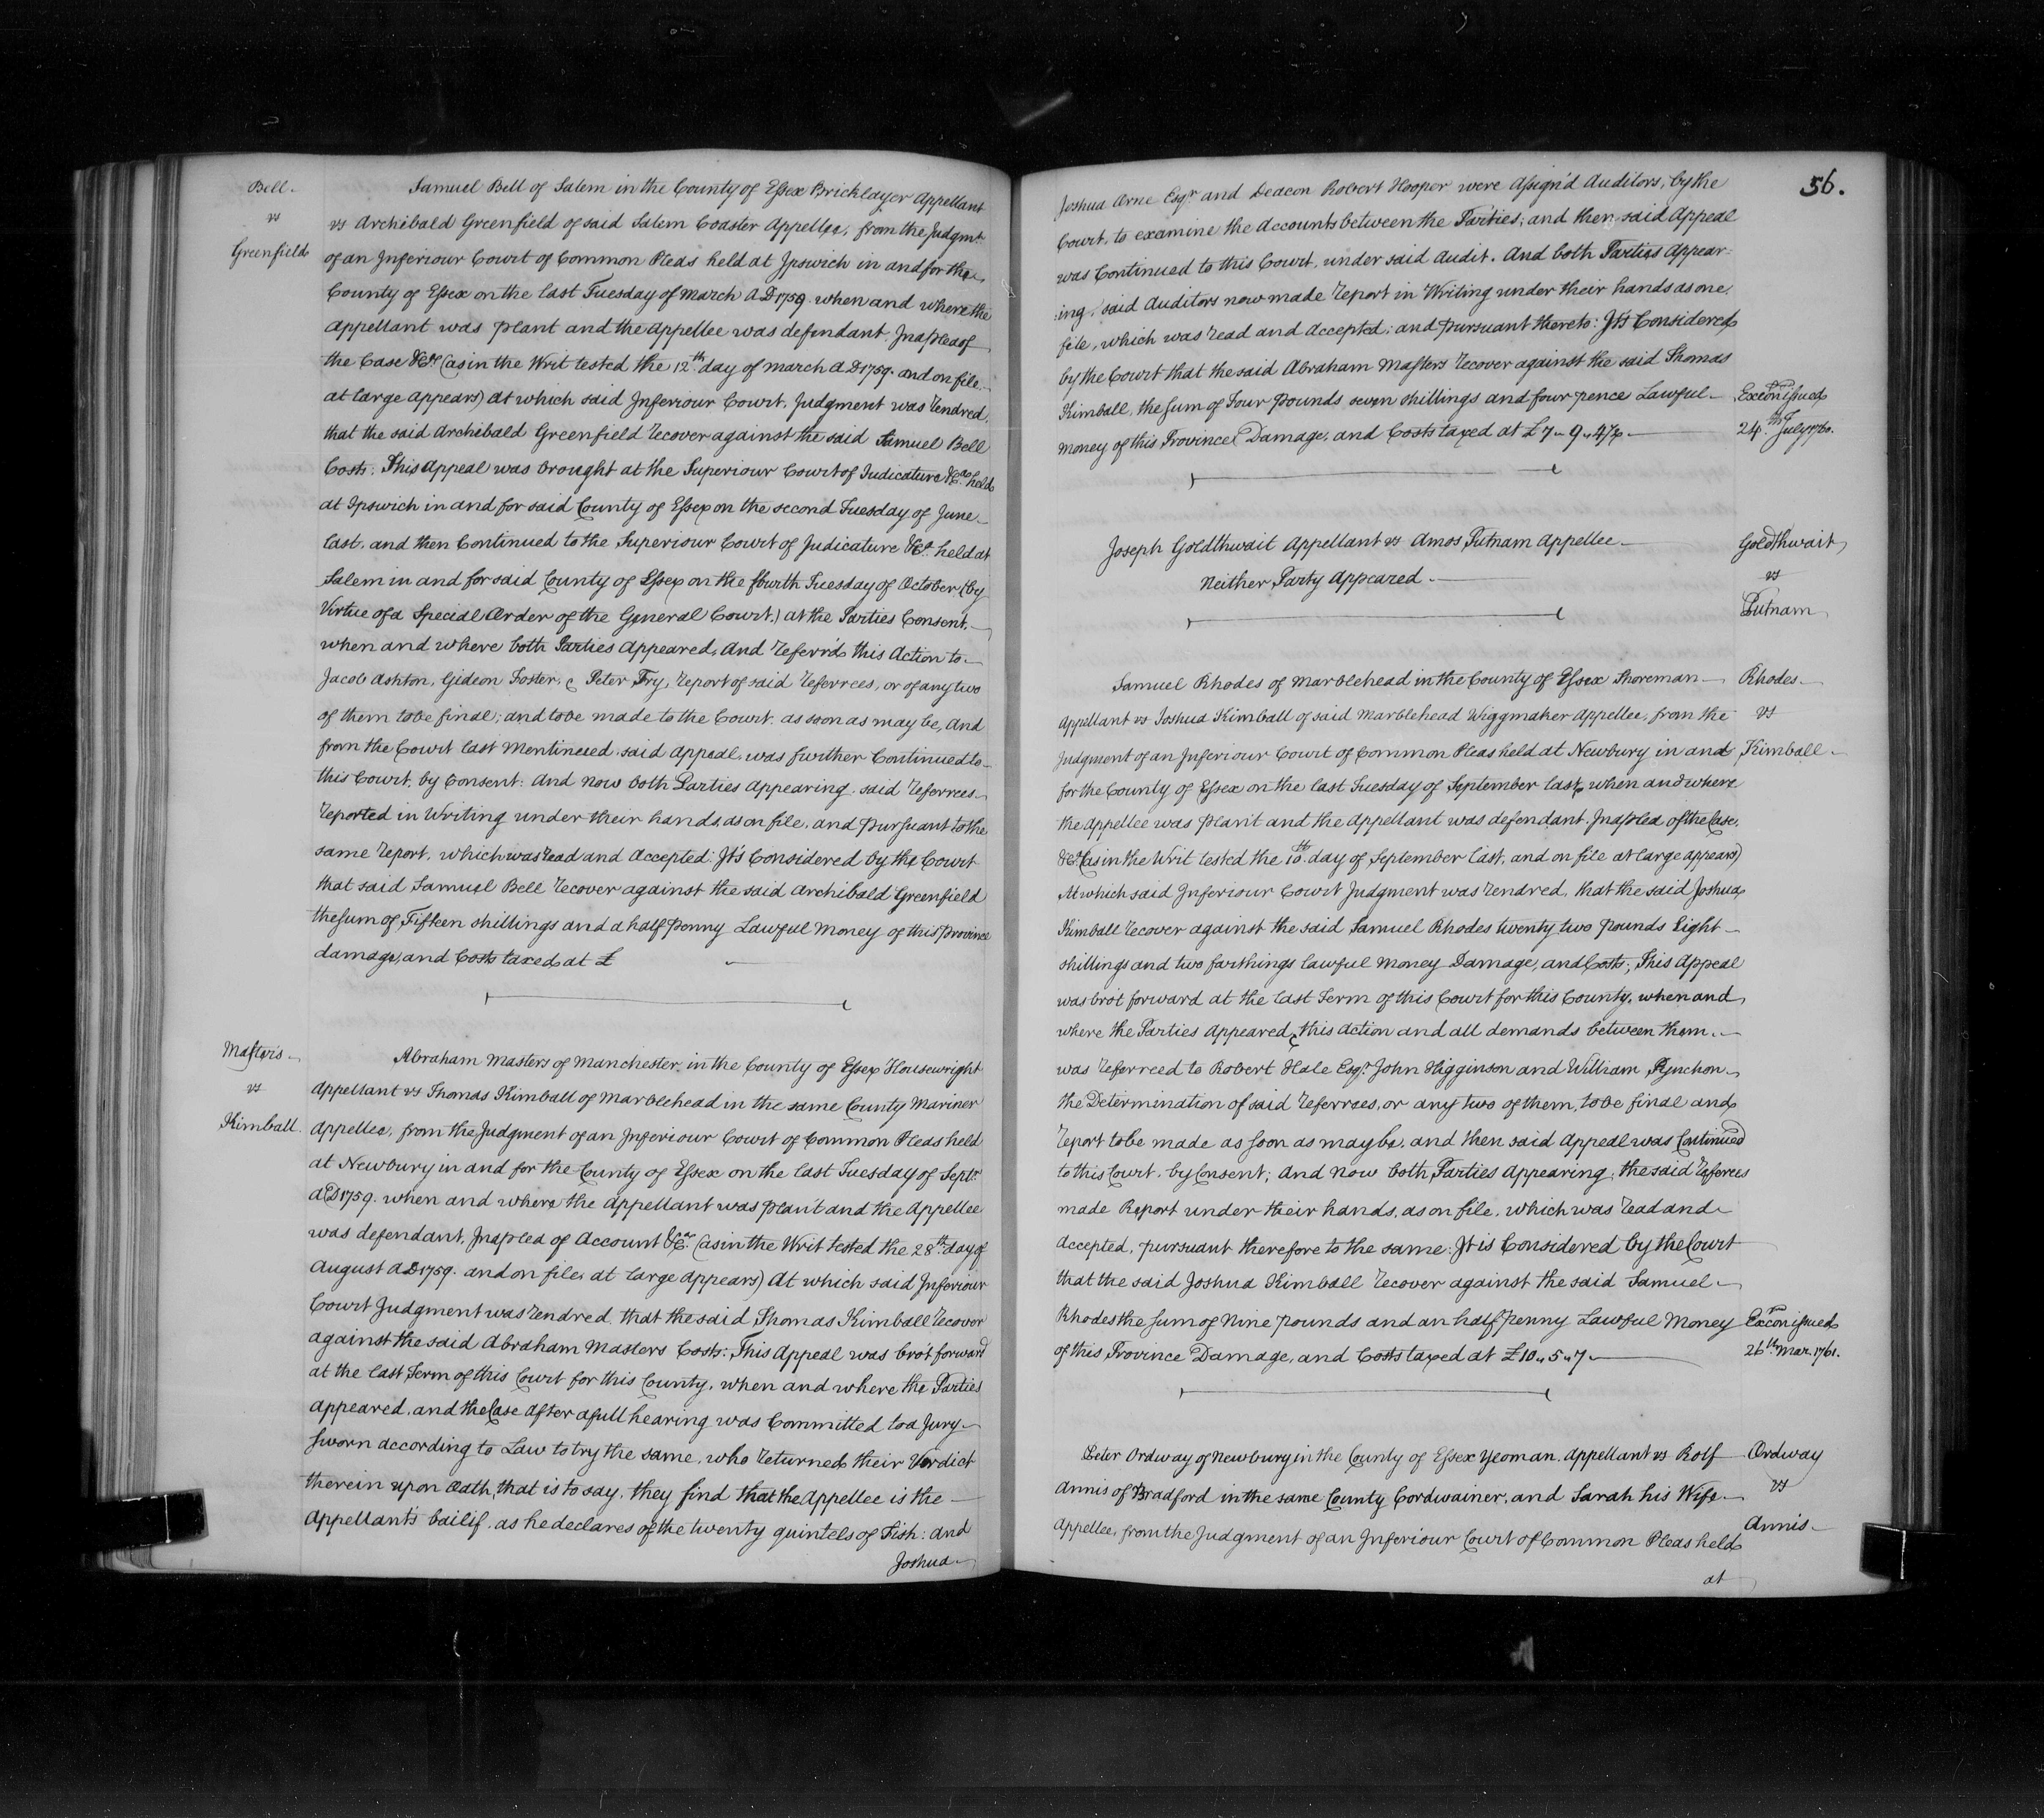 Bell
vs
Greenfield
Samuel Bell of Salem in the County of Essex Bricklayer Appellant
vs Archibald Greenfield of said Salem Coaster Appellee, from the Judgmt.
of an Inferiour Court of Common Pleas held at Ipswich in and for the
County of Essex on the last Tuesday of March A D 1759. when and where the
Appellant was plant and the Appellee was defendant, In a plea of
the Case &Ca (as in the Writ tested the 12th day of march A D 1759. and on file
at large appears) at which said Inferiour Court, Judgment was rendred,
that the said Archibald Greenfield recover against the said Samuel Bell
Costs: This Appeal was brought at the Superiour Court of Judicature &Ca held
at Ipswich in and for said County of Essex on the second Tuesday of June
last, and then Continued to the Superiour Court of Judicature &Ca held at
Salem in and for said County of Essex on the fourth Tuesday of October (by
Virtue of a Special Order of the General Court,) at the Parties Consent,
when and where both Parties Appeared, And referr'd this Action to
Jacob Ashton, Gideon Foster, & Peter Fry, report of said referrees, or of any two
of them to be final; and to be made to the Court as soon as may be, And
from the Court last Mentineed said Appeal was further Continued to
this Court by Consent: And now both Parties Appearing said referrees
reported in Writing under their hands, as on file, and pursuant to the
same report, which was read and Accepted: It's Considered by the Court
that said Samuel Bell recover against the said Archibald Greenfield
the sum of Fifteen shillings and a half penny Lawful Money of this Province
damage, and Costs taxed at £
Masters
vs
Kimball.
Abraham Masters of Manchester in the County of Essex Housewright
Appellant vs Thomas Kimball of Marblehead in the same County Mariner
Appellee, from the Judgment of an Inferiour Court of Common Pleas held
at Newbury in and for the County of Essex on the last Tuesday of Septr.
A D 1759. when and where the Appellant was plant and the Appellee
was defendant, In a plea of Account &Ca (as in the Writ tested the 28th day of
August A D 1759. and on file at large appears) At which said Inferiour
Court Judgment was rendred that the said Thomas Kimball recover
against the said Abraham Masters Costs: This Appeal was bro't forward
at the last Term of this Court for this County, when and where the Parties
appeared, and the Case After a full hearing was Committed to a Jury
sworn according to Law to try the same, who returned their Verdict
therein upon Oath, that is to say, they find that the Appellee is the
Appellants bailif, as he declares of the twenty quintels of Fish: and
Joshua
56.
Joshua Orne Esqr and Deacon Robert Hooper were Assign'd Auditors, by the
Court, to examine the Accounts between the Parties; and then said Appeal
was Continued to this Court, under said Audit. And both Parties Appear:
:ing, said Auditors now made report in Writing under their hands as on
file, which was read and Accepted; and pursuant thereto: It's Considered
by the Court that the said Abraham Masters recover against the said Thomas
Kimball, the sum of Four pounds seven shillings and four pence Lawful
money of this Province Damage, and Costs taxed at £7"9"4/
Excōn issued
24th July 1760.
Joseph Goldthwait Appellant vs Amos Putnam Appellee
Neither Party Appeared.
Goldthwait
vs
Putnam
Samuel Rhodes of Marblehead in the County of Essex Shoreman
Appellant vs Joshua Kimball of said Marblehead Wiggmaker Appellee, from the
Judgment of an Inferiour Court of Common Pleas held at Newbury in and
for the County of Essex on the last Tuesday of September last, when and where
the Appellee was plan't and the Appellant was defendant, In a plea of the Case,
&Ca (as in the Writ tested the 10th day of September last, and on file at large appears)
At which said Inferiour Court Judgment was rendred, that the said Joshua
Kimball recover against the said Samuel Rhodes twenty two pounds Eight
shillings and two farthings lawful Money Damage, and Costs; This Appeal
was bro't forward at the last Term of this Court for this County, when and
where the Parties Appeared & this Action and all demands between them
was referreed to Robert Hale Esqr John Higginson and William Pynchon
the Determination of said referrees, or any two of them, to be final and
report to be made as soon as may be, and then said Appeal was Continued
to this Court, by Consent; And now both Parties Appearing, the said referees
made Report under their hands, as on file, which was read and
Accepted, pursuant therefore to the same: It is Considered by the Court
that the said Joshua Kimball recover against the said Samuel
Rhodes the sum of Nine pounds and an half penny Lawful Money
of this Province Damage, and Costs taxed at £10"5"7
Rhodes
vs
Kimball
Excōn issued
26th Mar. 1761.
Peter Ordway of Newbury in the County of Essex Yeoman Appellant vs Rolf
Annis of Bradford in the same County Cordwainer, and Sarah his Wife
Appellee, from the Judgment of an Inferiour Court of Common Pleas held
at
Ordway
vs
Annis